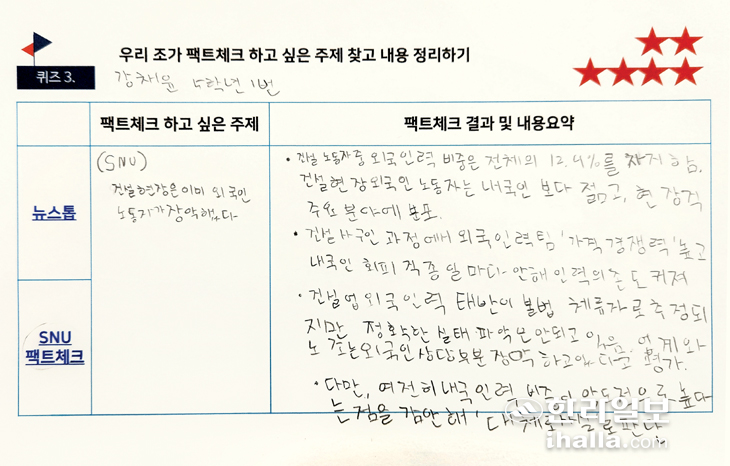 우리 조가 팩트체크 하고 싶은 주제 찾고 내용 정리하기
퀴즈 3.
강채윤 5학년 1번
팩트체크 하고 싶은 주제
팩트체크 결과 및 내용요약
뉴스톱
(SNU)
건설현장은 이미 외국인
노동자가 장악했다
SNU
팩트체크
• 건설 노동자 중 외국인력 비중은 전체의 12.4%를 차지함.
건설현장 외국인 노동자는 내국인 보다 젊고, 현장직
주요 분야에 분포.
• 건설 사 구인 과정에서 외국인력팀 '가격경쟁력' 높고
내국인 회피 직종 일마다 안해 인력의존도 커져
• 건설업 외국인력 태반이 불법 체류자로 추정되
지만 정확한 실태 파악은 안되고 있음. 업계와
노조는 외국인 상당부분 장악하고 있다고 평가.
• 다만, 여전히 내국인력 비중이 압도적으로 높다
는 점을 감안해,
한라일보
ihalla.com